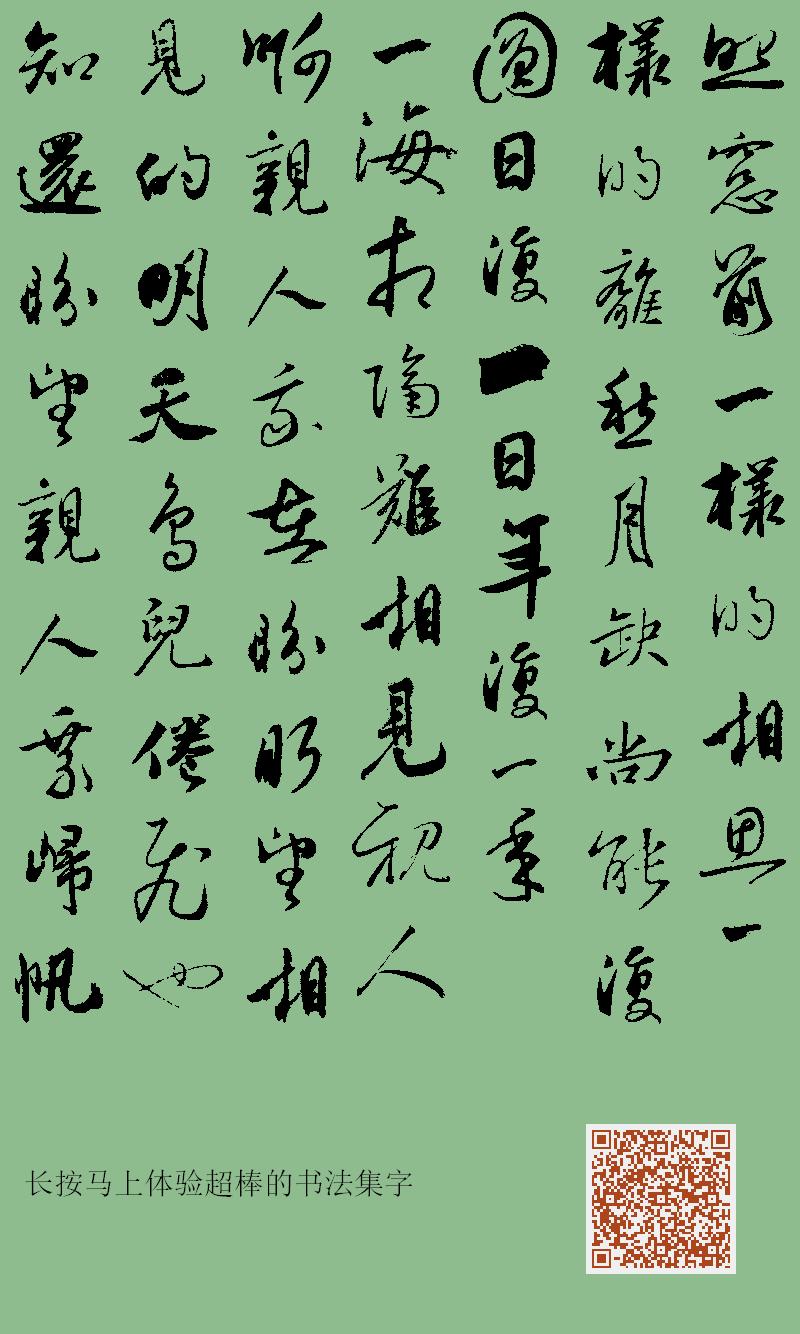 照窓前一樣的相思一
樣的離愁月缺尚能復
圓日復一日年復一年
一海相隔難相見親人
啊親人我在盼盻望相
見的明天鳥兒倦飛也
知還盼望親人乘歸帆
长按马上体验超棒的书法集字